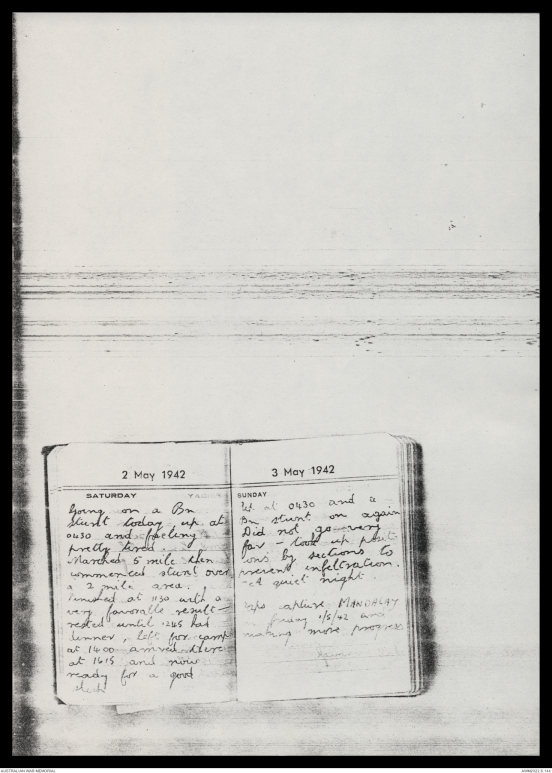 2 May 1942
SATURDAY
Going on a Bn
stunt today, up at
0430 and feeling
pretty tired.
Marched 5 mile then
commenced stunt over
a 2 mile area.
Finished at 1130 with a
very favorable result -
rested until 1245 had
dinner, left for camp
at 1400 arrived there
at 1615 and now
ready for a good
3 May 1942
SUNDAY
Up at 0430 and a
Bn stunt on again
Did not go very
far - took up posit
ions by sections to
prevent infiltration.
- A quiet night
Japs capture MANDALAY
on friday 1/5/42 and
making more progress
AUSTRALIAN WAR MEMORIAL